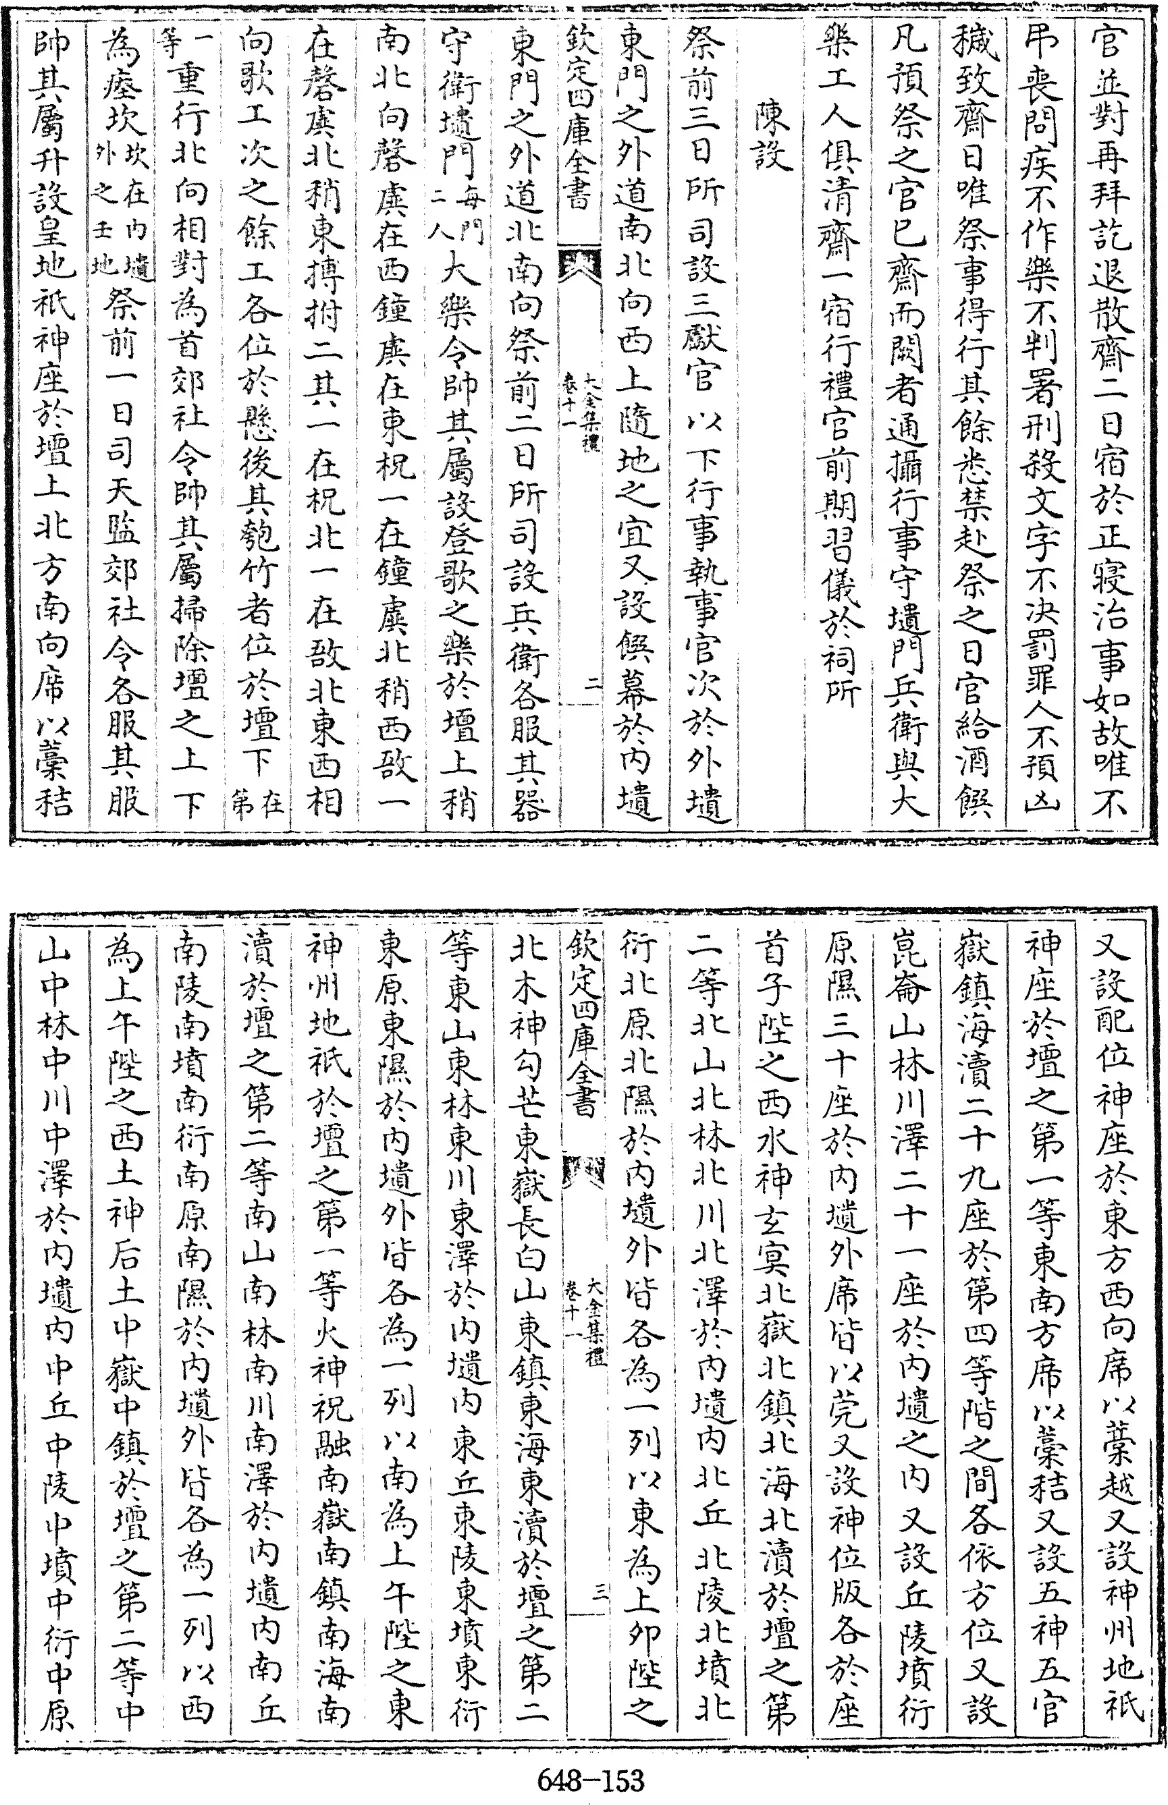 官並對再拜訖退散齋二日宿於正寢治事如故唯不
弔喪問疾不作樂不判署刑殺文字不決罰罪人不預凶
穢致齋日唯祭事得行其餘悉禁赴祭之日官給酒饌
凡預祭之官已齋而闕者通攝行事守壝門兵衛與大
樂工人俱清齋一宿行禮官前期習儀於祠所
陳設
祭前三日所司設三獻官以下行事執事官次於外壝
東門之外道南北向西上隨地之宜又設饌幕於內壝
欽定四庫全書 大金集禮 卷十一 二
東門之外道北南向祭前二日所司設兵衛各服其器
守衛壝門每門二人大樂令帥其屬設登歌之樂於壇上稍
南北向磬虡在西鐘虡在東柷一在鐘虡北稍西敔一
在磬虡北稍東搏拊二其一在柷北一在敔北東西相
向歌工次之餘工各位於懸後其匏竹者位於壇下在第
一等重行北向相對為首郊社令帥其屬掃除壇之上下
為瘞坎坎在內壝外之壬地祭前一日司天監郊社令各服其服
帥其屬升設皇地祇神座於壇上北方南向席以藁秸
又設配位神座於東方西向席以藁越又設神州地祇
神座於壇之第一等東南方席以藁秸又設五神五官
嶽鎮海瀆二十九座於第四等階之間各依方位又設
崑崙山林川澤二十一座於內壝之內又設丘陵墳衍
原隰三十座於內壝外席皆以莞又設神位版各於座
首子陛之西水神玄冥北嶽北鎮北海北瀆於壇之第
二等北山北林北川北澤於內壝內北丘北陵北墳北
衍北原北隰於內壝外皆各為一列以東為上卯陛之
欽定四庫全書 大金集禮 卷十一 三
北木神勾芒東嶽長白山東鎮東海東瀆於壇之第二
等東山東林東川東澤於內壝內東丘東陵東墳東衍
東原東隰於內壝外皆各為一列以南為上午陛之東
神州地祇於壇之第一等火神祝融南嶽南鎮南海南
瀆於壇之第二等南山南林南川南澤於內壝內南丘
南陵南墳南衍南原南隰於內壝外皆各為一列以西
為上午陛之西土神后土中嶽中鎮於壇之第二等中
山中林中川中澤於內壝內中丘中陵中墳中衍中原
648-153